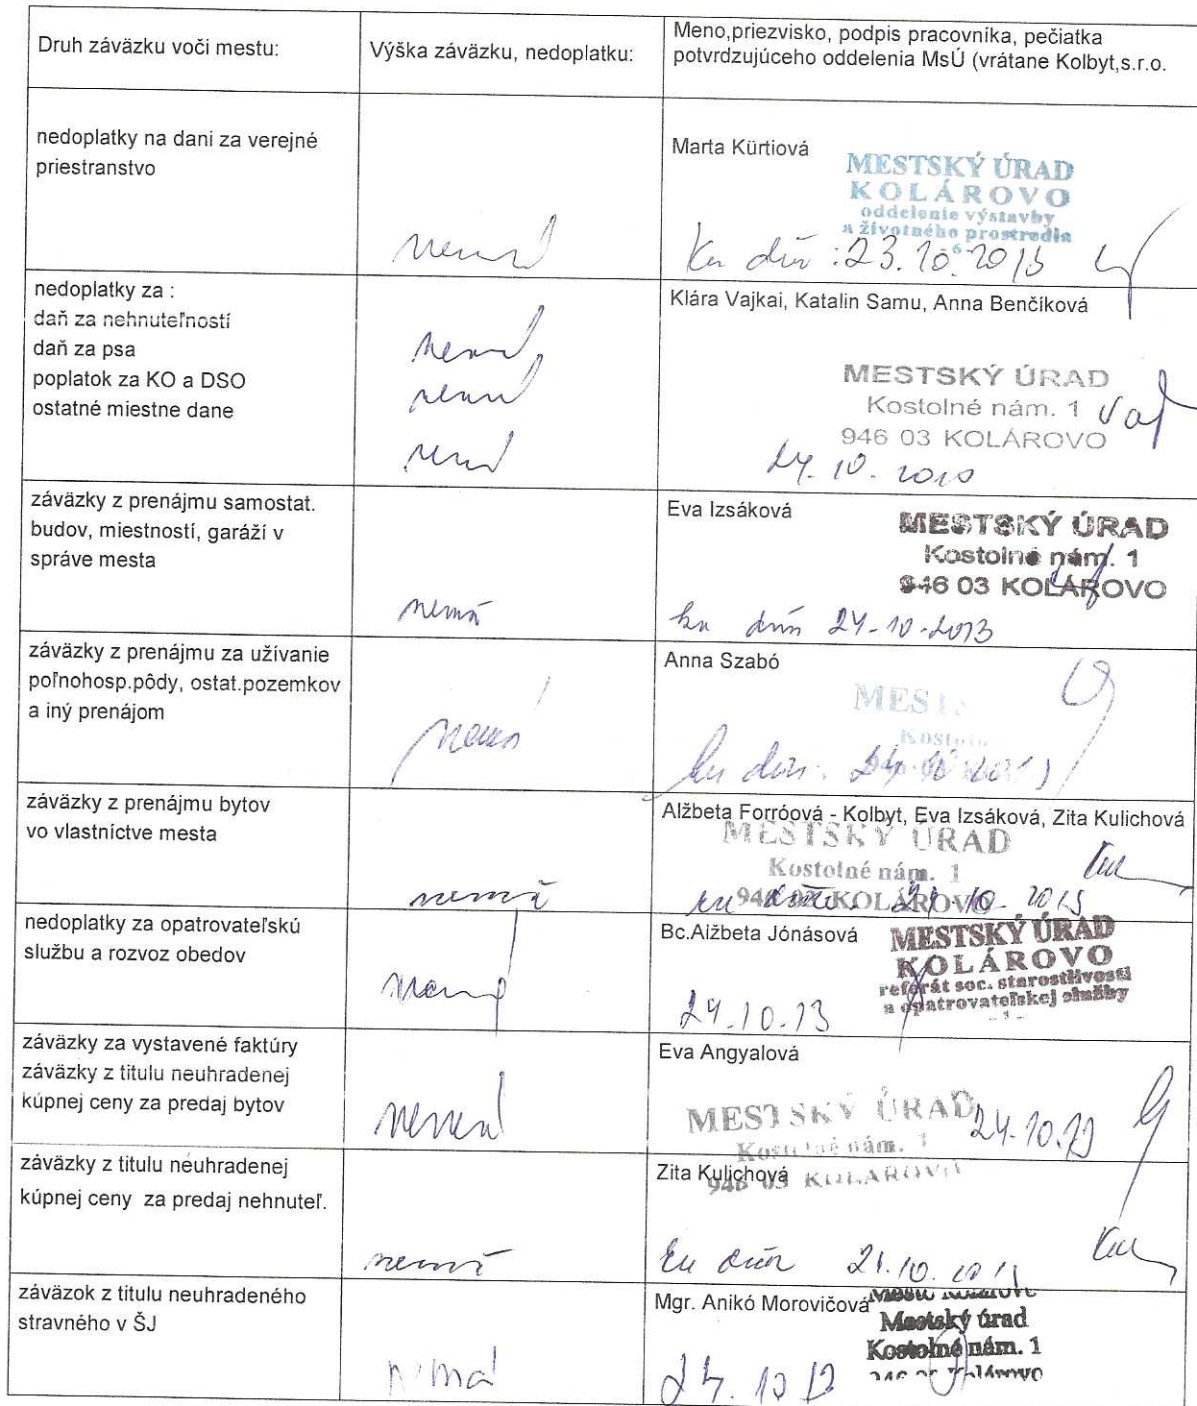 Druh záväzku voči mestu:
Výška záväzku, nedoplatku:
Meno,priezvisko, podpis pracovníka, pečiatka
potvrdzujúceho oddelenia MsÚ (vrátane Kolbyt,s.r.o.
nedoplatky na dani za verejné
priestranstvo
Marta Kürtiová
MESTSKÝ ÚRAD
KOLÁROVO
oddelenie výstavby
a životného prostredia
23.10.2013
nedoplatky za :
daň za nehnuteľností
daň za psa
poplatok za KO a DSO
ostatné miestne dane
Klára Vajkai, Katalin Samu, Anna Benčíková
MESTSKÝ ÚRAD
Kostolné nám. 1
946 03 KOLÁROVO
24. 10.
záväzky z prenájmu samostat.
budov, miestností, garáží v
správe mesta
nemá
Eva Izsáková
MESTSKÝ ÚRAD
Kostolné nám. 1
946 03 KOLÁROVO
24-10-2013
záväzky z prenájmu za užívanie
poľnohosp.pôdy, ostat.pozemkov
a iný prenájom
nemá
Anna Szabó
záväzky z prenájmu bytov
vo vlastníctve mesta
nemá
Alžbeta Forróová - Kolbyt, Eva Izsáková, Zita Kulichová
MESTSKÝ ÚRAD
Kostolné nám. 1
946 03 KOLÁROVO
nedoplatky za opatrovateľskú
službu a rozvoz obedov
nemá
Bc.Alžbeta Jónásová
MESTSKÝ ÚRAD
KOLÁROVO
referát soc. starostlivosti
a opatrovateľskej služby
- 1 -
24.10.13
záväzky za vystavené faktúry
záväzky z titulu neuhradenej
kúpnej ceny za predaj bytov
nemá
Eva Angyalová
MESTSKÝ ÚRAD
Kostolné nám. 1
946 03 KOLÁROVO
24.10.13
záväzky z titulu neuhradenej
kúpnej ceny za predaj nehnuteľ.
nemá
Zita Kulichová
záväzok z titulu neuhradeného
stravného v ŠJ
nemá
Mgr. Anikó Morovičová
Mestský úrad
Kostolné nám. 1
24. 10 13